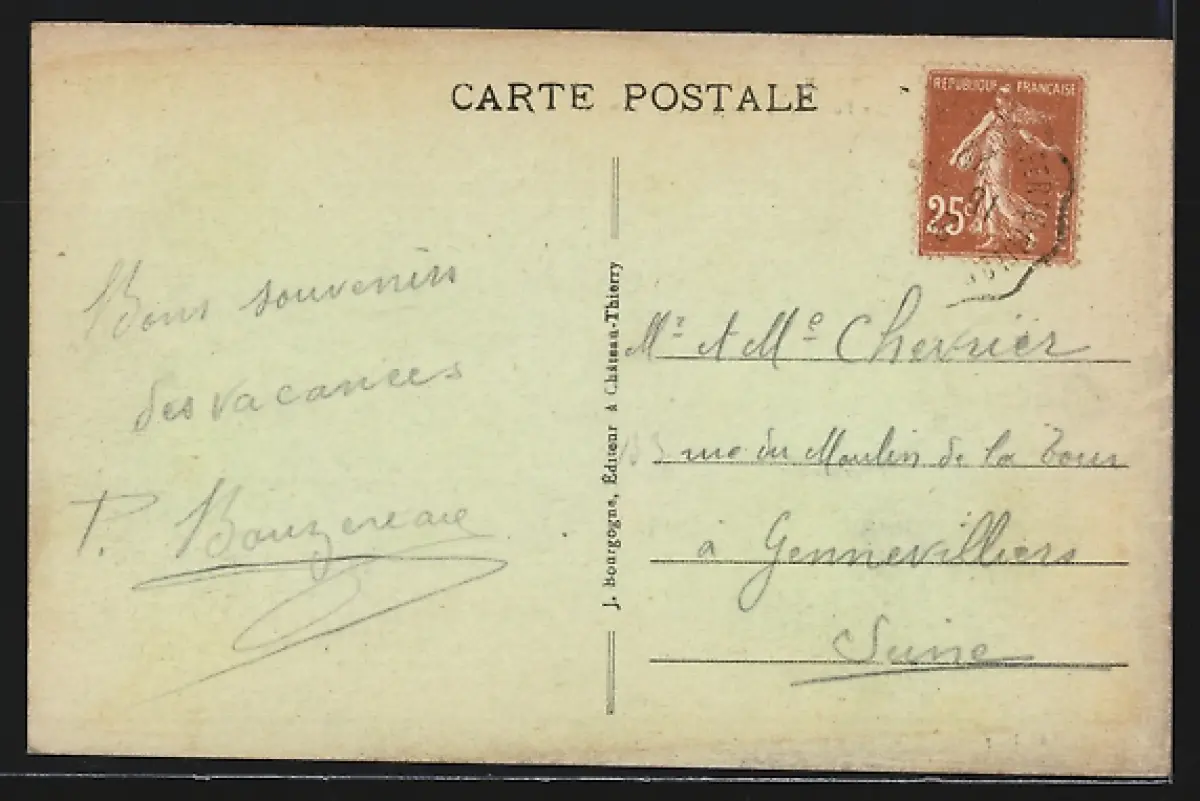 CARTE POSTALE
REPUBLIQUE FRANÇAISE
25c
Bons souvenirs
des vacances
P.
J. Bourgogne, Éditeur à Château-Thierry
Mr et Me Chevrier
rue du Moulin de la Tour
à Gennevilliers
Seine